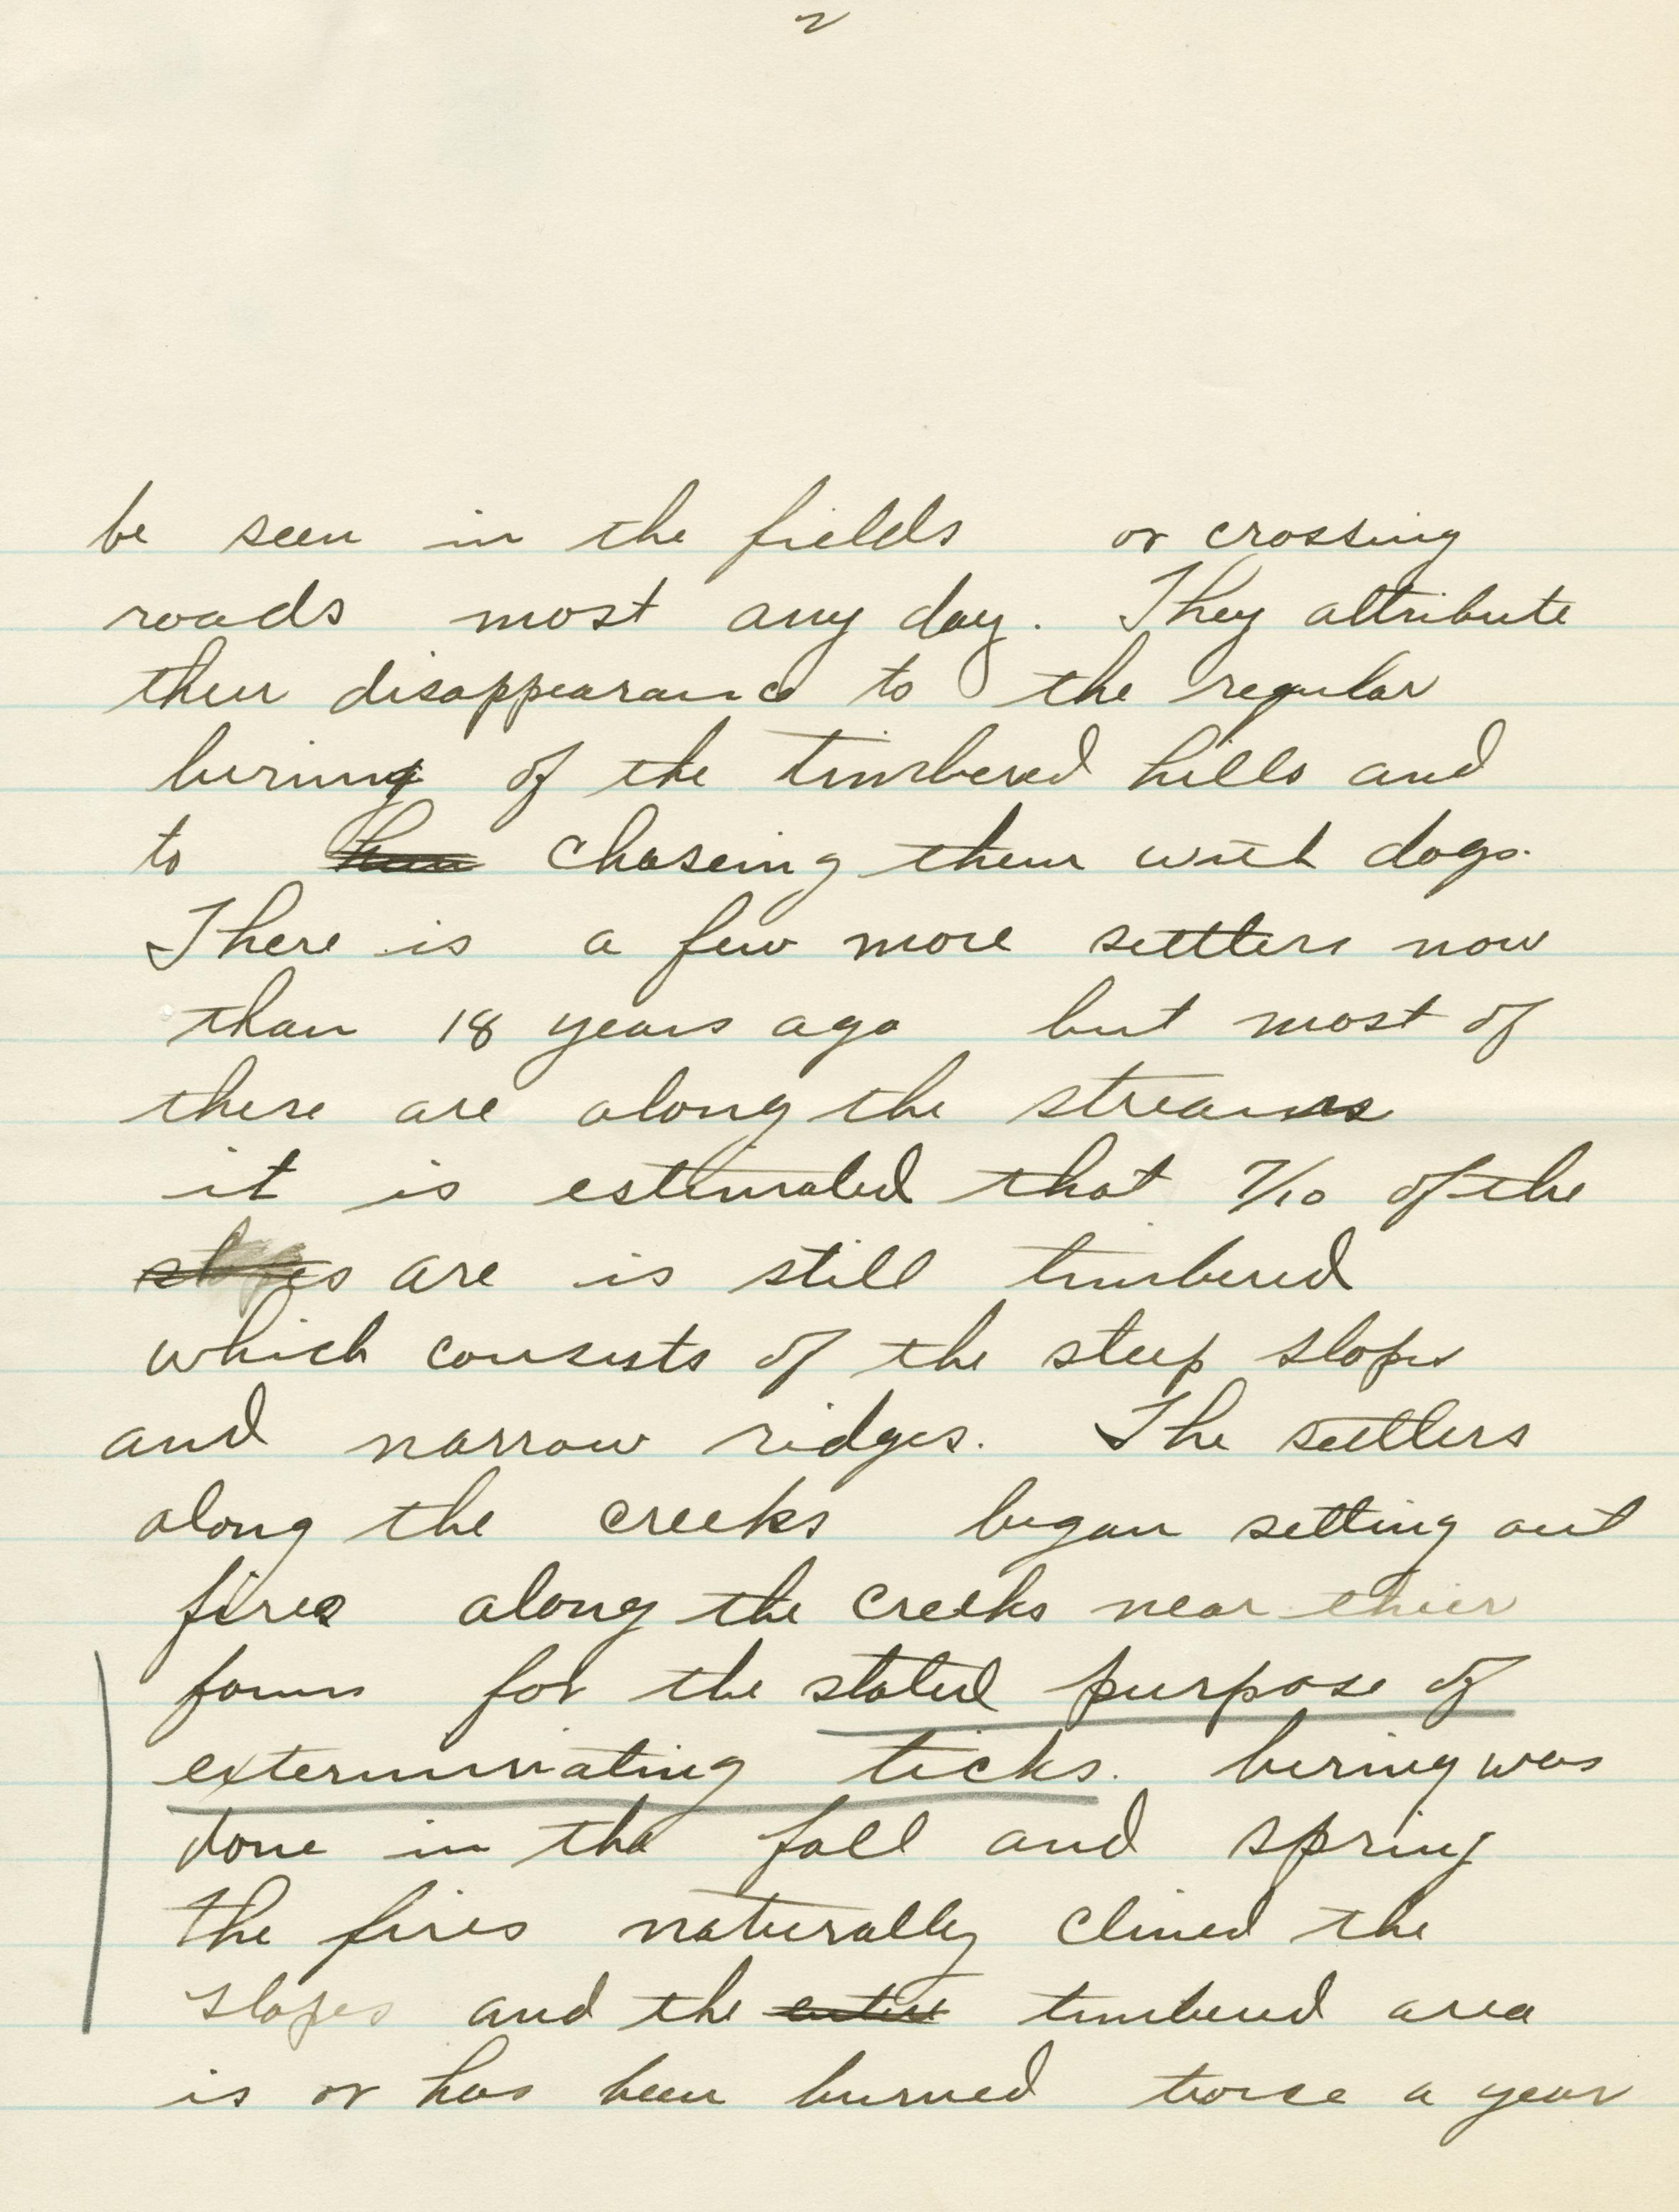 2
be seen in the fields or crossing
roads most any day. They attribute
their disappearance to the regular
burning of the timbered hills and
to chaseing them with dogs.
There is a few more settlers now
than 18 years ago but most of
these are along the streams
it is estimated that 7/10 of the
slopes are is still timbered
which consists of the steep slopes
and narrow ridges. The settlers
along the creeks began setting out
fires along the creeks near thier
farms for the stated purpose of
exterminating ticks. buring was
done in the fall and spring
the fires naturally climed the
slopes and the entire timbered area
is or has been burned twice a year